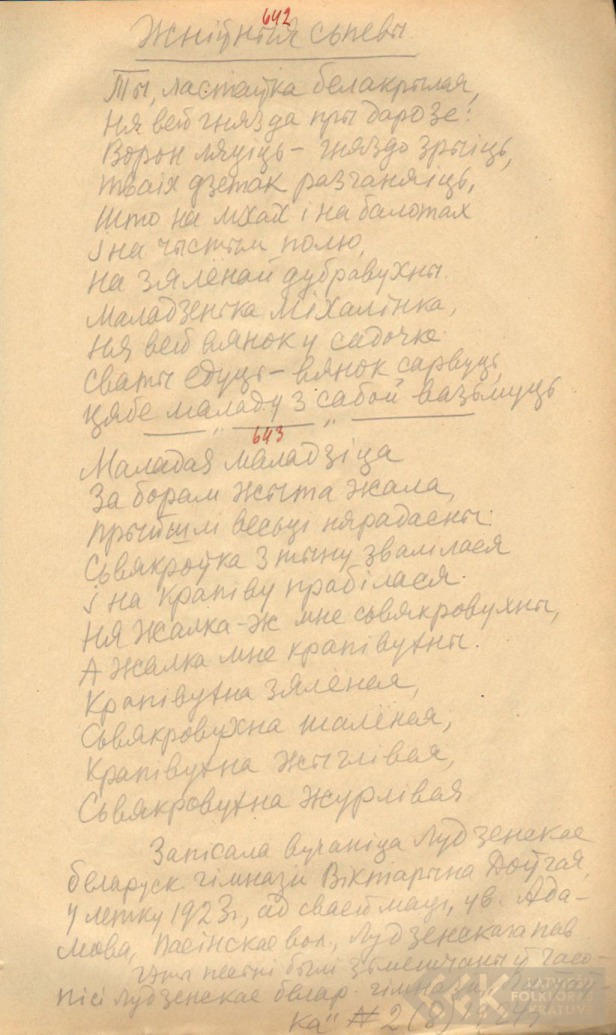 642
Жніўныя сьпевы
Ты, ластаўка белакрылая,
Ня вей гнязда пры дарозе:
Ворон ляціць – гняздо зрыіць,
Тваіх дзетак разганяіць,
Што на мхах і на балотах
І на чыстым полю,
На зялёнай дубравухны.
Маладзенька Міхалінка,
Ня вей вянок у садочке
Сваты едуць – вянок сарвуць,
Цябе маладу з сабой вазьмуць
643
Маладая маладзіца
За борам жыта жала,
Прыйшлі весьці нярадасны.
Сьвякроўка з тыну звалілася
І на крапіву прабілася.
Ня жалка-ж мне сьвякровухны,
А жалка мне крапівухны.
Крапівухна зялёная,
Сьвякровухна шалёная,
Крапівухна жыглівая,
Сьвякровухна журлівая
Запісала вучаніца Лудзенскае
беларуск. гімназіі Віктарына Доўгая,
у летку 1923 г., ад сваей маці, ув. Ада-
мова, Пасінскае вол., Лудзенскага пав
Гэты песні былі зьмешчаны ў часо-
пісі Лудзенскае белар. гімназіі
ка" № 2
LATVIEŠU
FOLKLORAS
KRĀTUVE